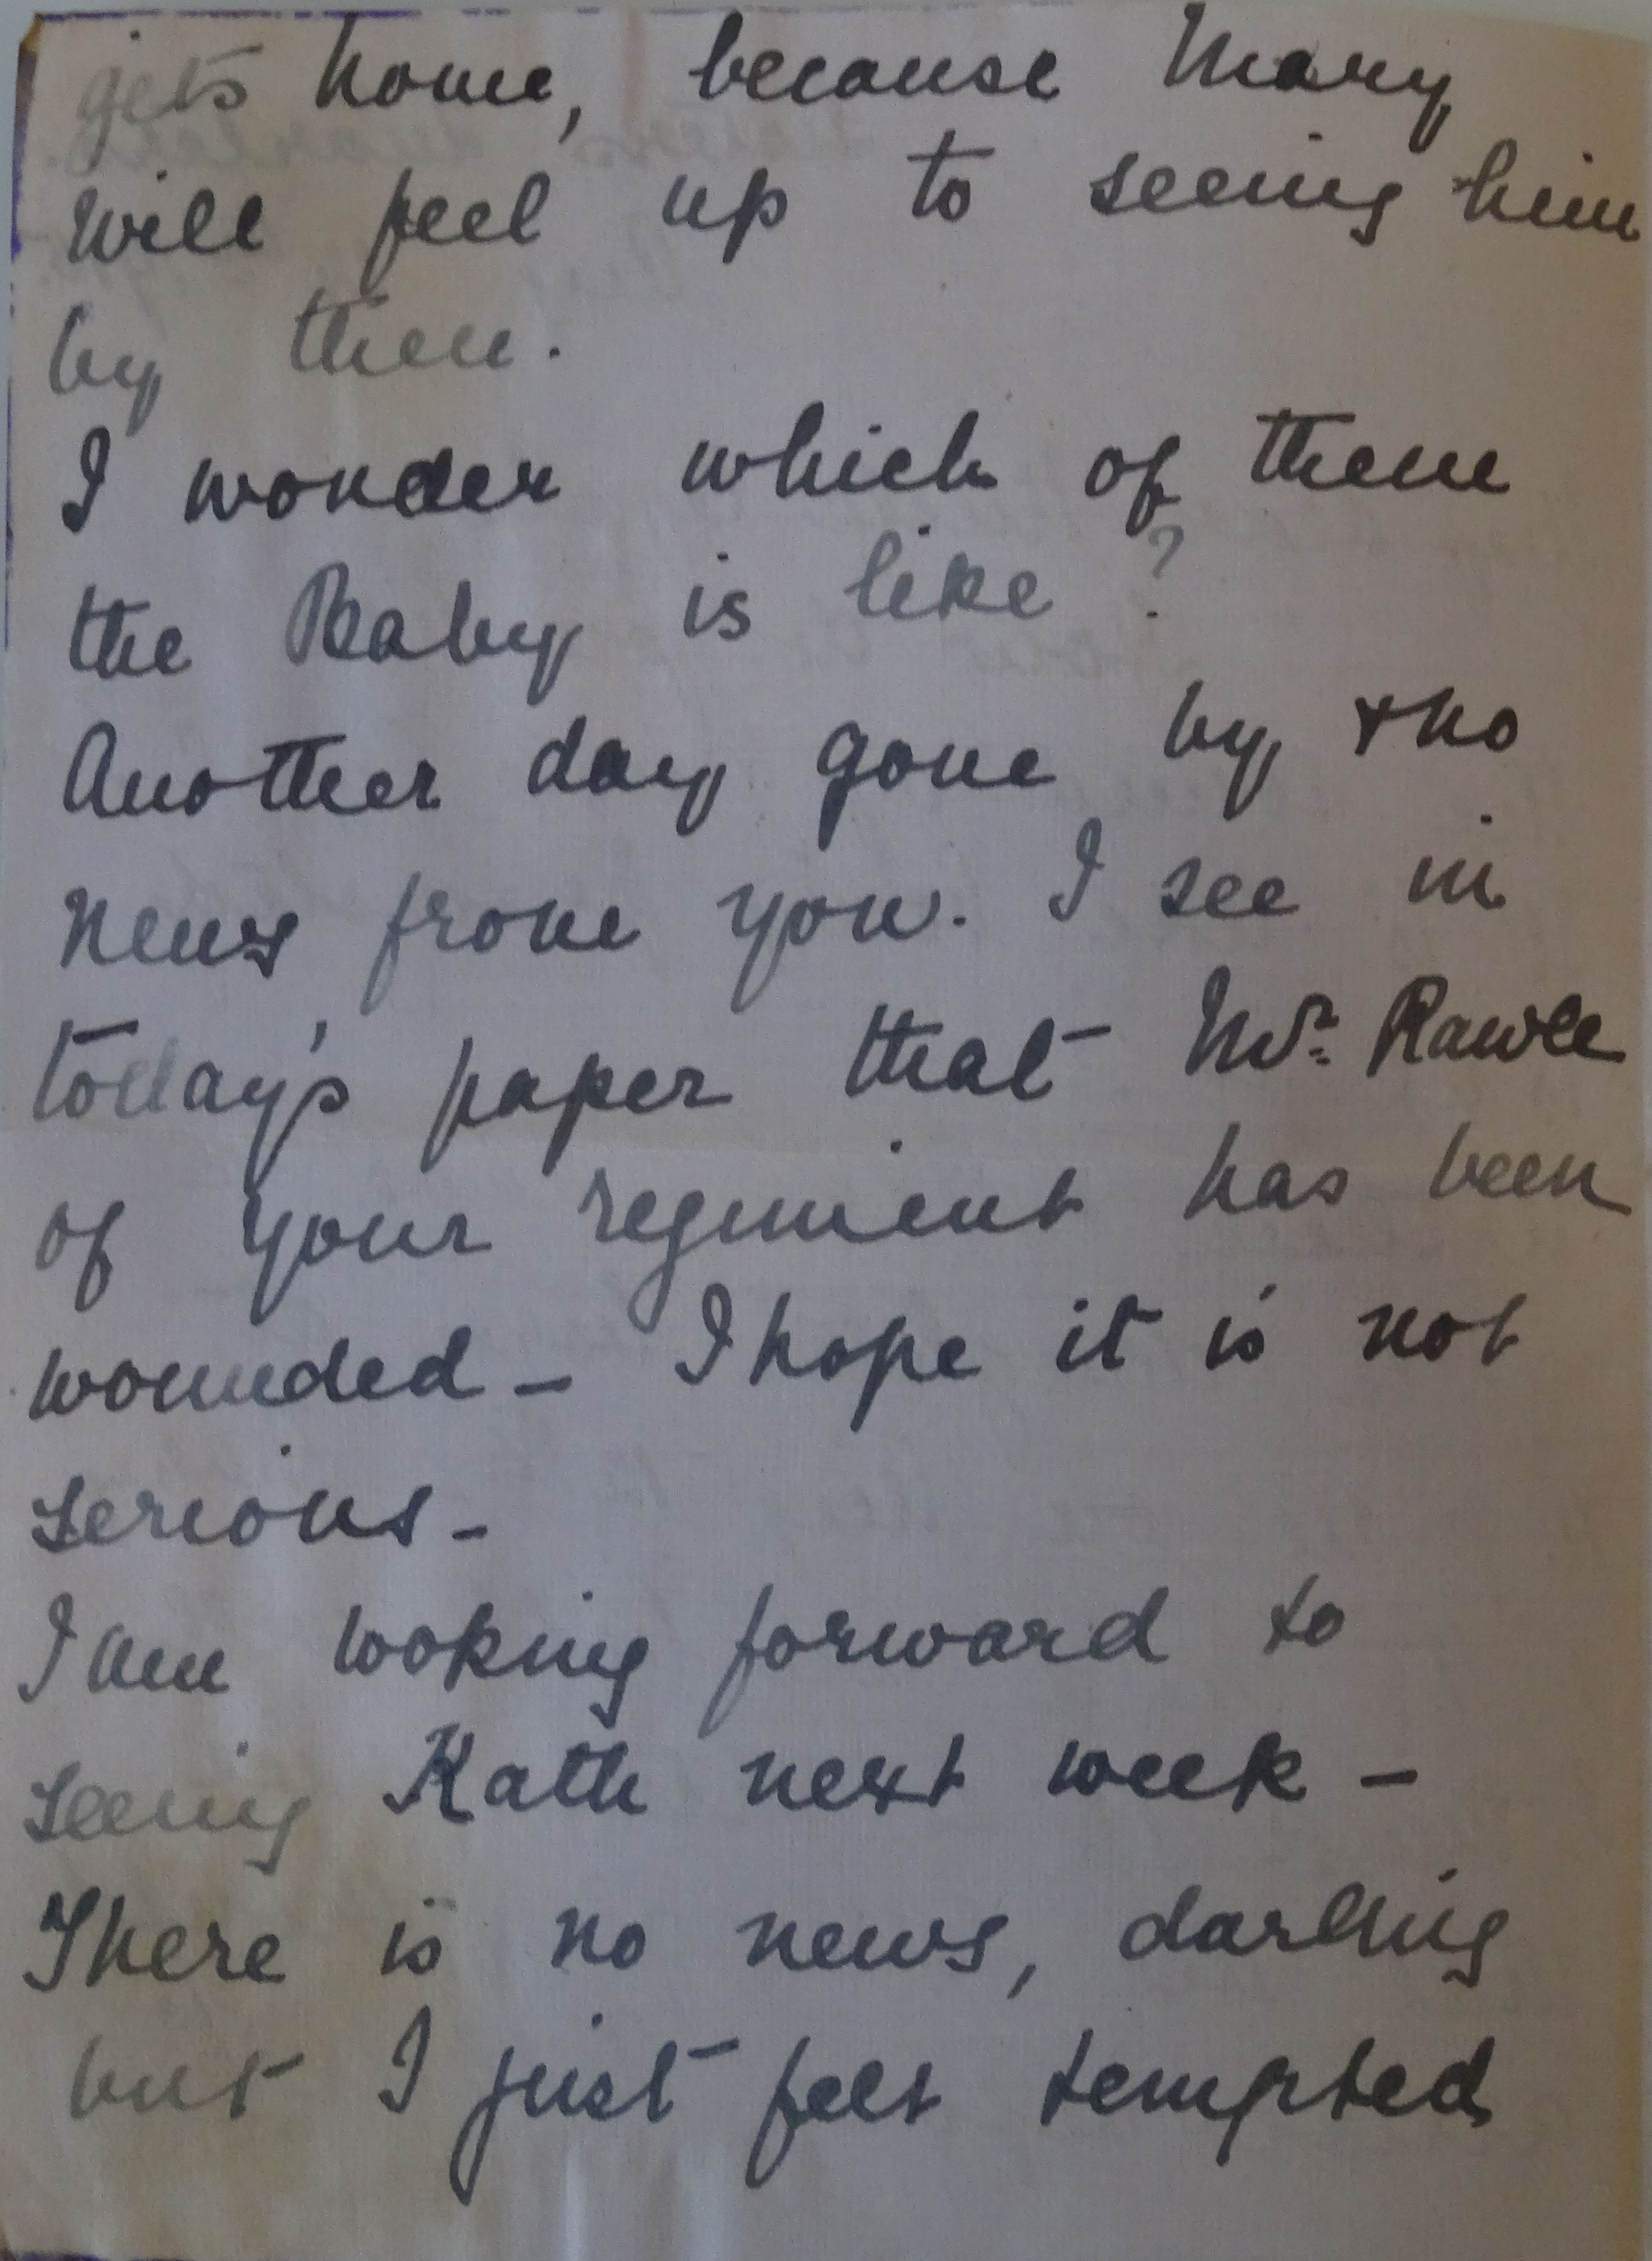 gets home, because Mary
will feel up to seeing him
by then.
I wonder which of them
the Baby is like?
Another day gone by & no
news from you. I see in
today's paper that Mr. Rawle
of your regiment has been
wounded - I hope it is not
serious -
I am looking forward to
seeing Kath next week -
There is no news, darling
but I just felt tempted